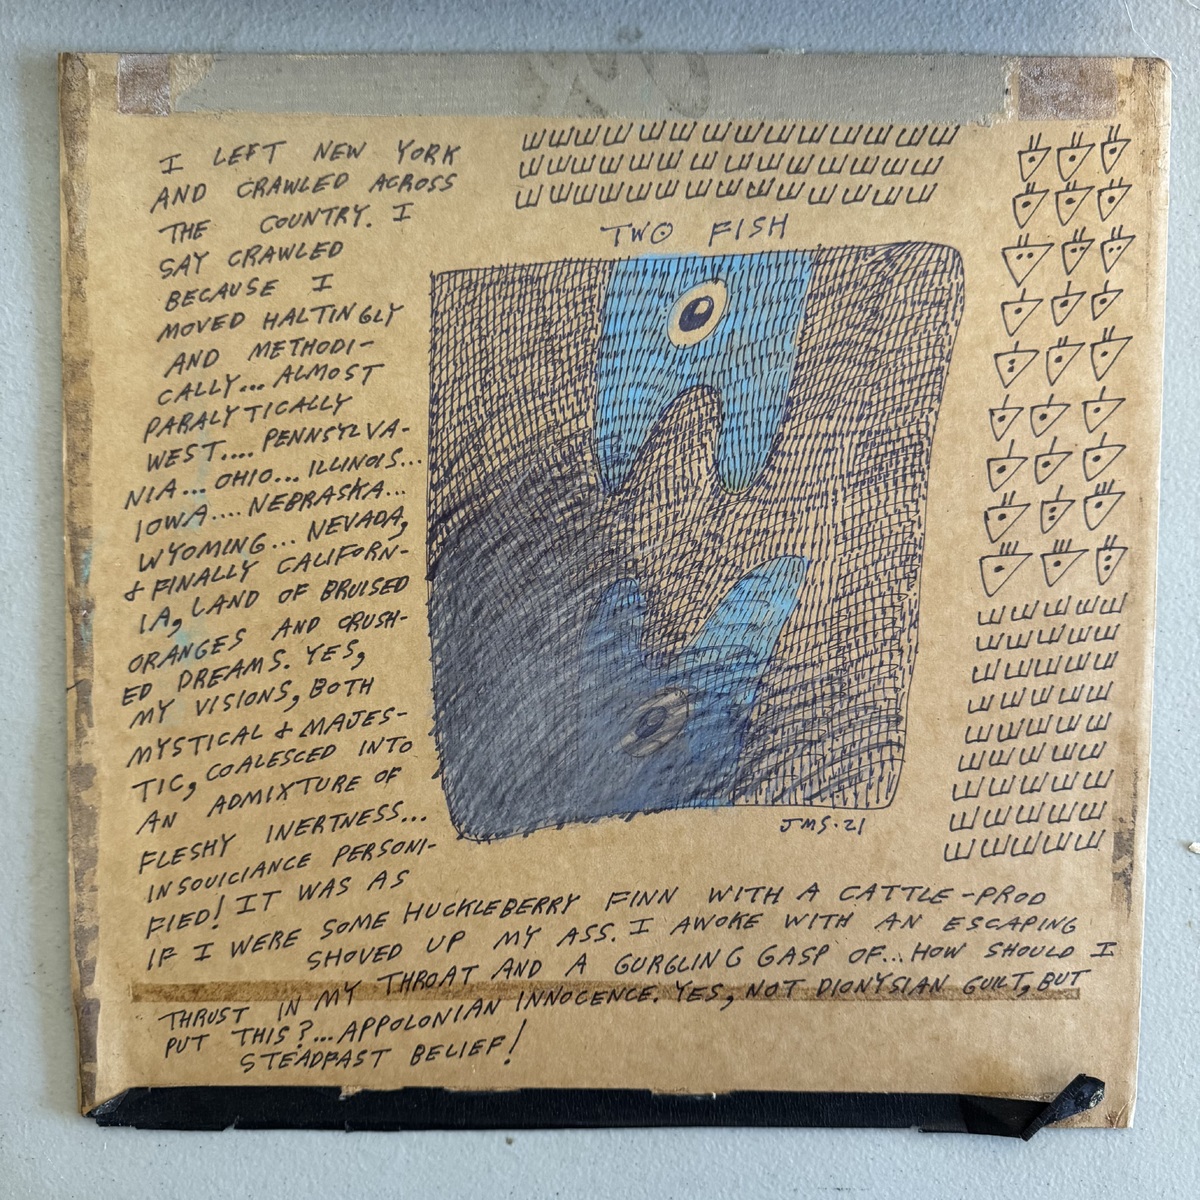 I LEFT NEW YORK
AND CRAWLED ACROSS
THE COUNTRY. I
SAY CRAWLED
BECAUSE I
MOVED HALTINGLY
AND METHODI-
CALLY... ALMOST
PARALYTICALLY
WEST.... PENNSYLVA-
NIA... OHIO... ILLINOIS...
IOWA.... NEBRASKA...
WYOMING... NEVADA,
& FINALLY CALIFORN-
IA, LAND OF BRUISED
ORANGES AND CRUSH-
ED DREAMS. YES,
MY VISIONS, BOTH
MYSTICAL & MAJES-
TIC, COALESCED INTO
AN ADMIXTURE OF
FLESHY INERTNESS...
INSOUICIANCE PERSONI-
FIED! IT WAS AS
IF I WERE SOME HUCKLEBERRY FINN WITH A CATTLE-PROD
SHOVED UP MY ASS. I AWOKE WITH AN ESCAPING
THRUST IN MY THROAT AND A GURGLING GASP OF... HOW SHOULD I
PUT THIS?... APPOLONIAN INNOCENCE. YES, NOT DIONYSIAN GUILT, BUT
STEADFAST BELIEF!
TWO FISH
JMS·21